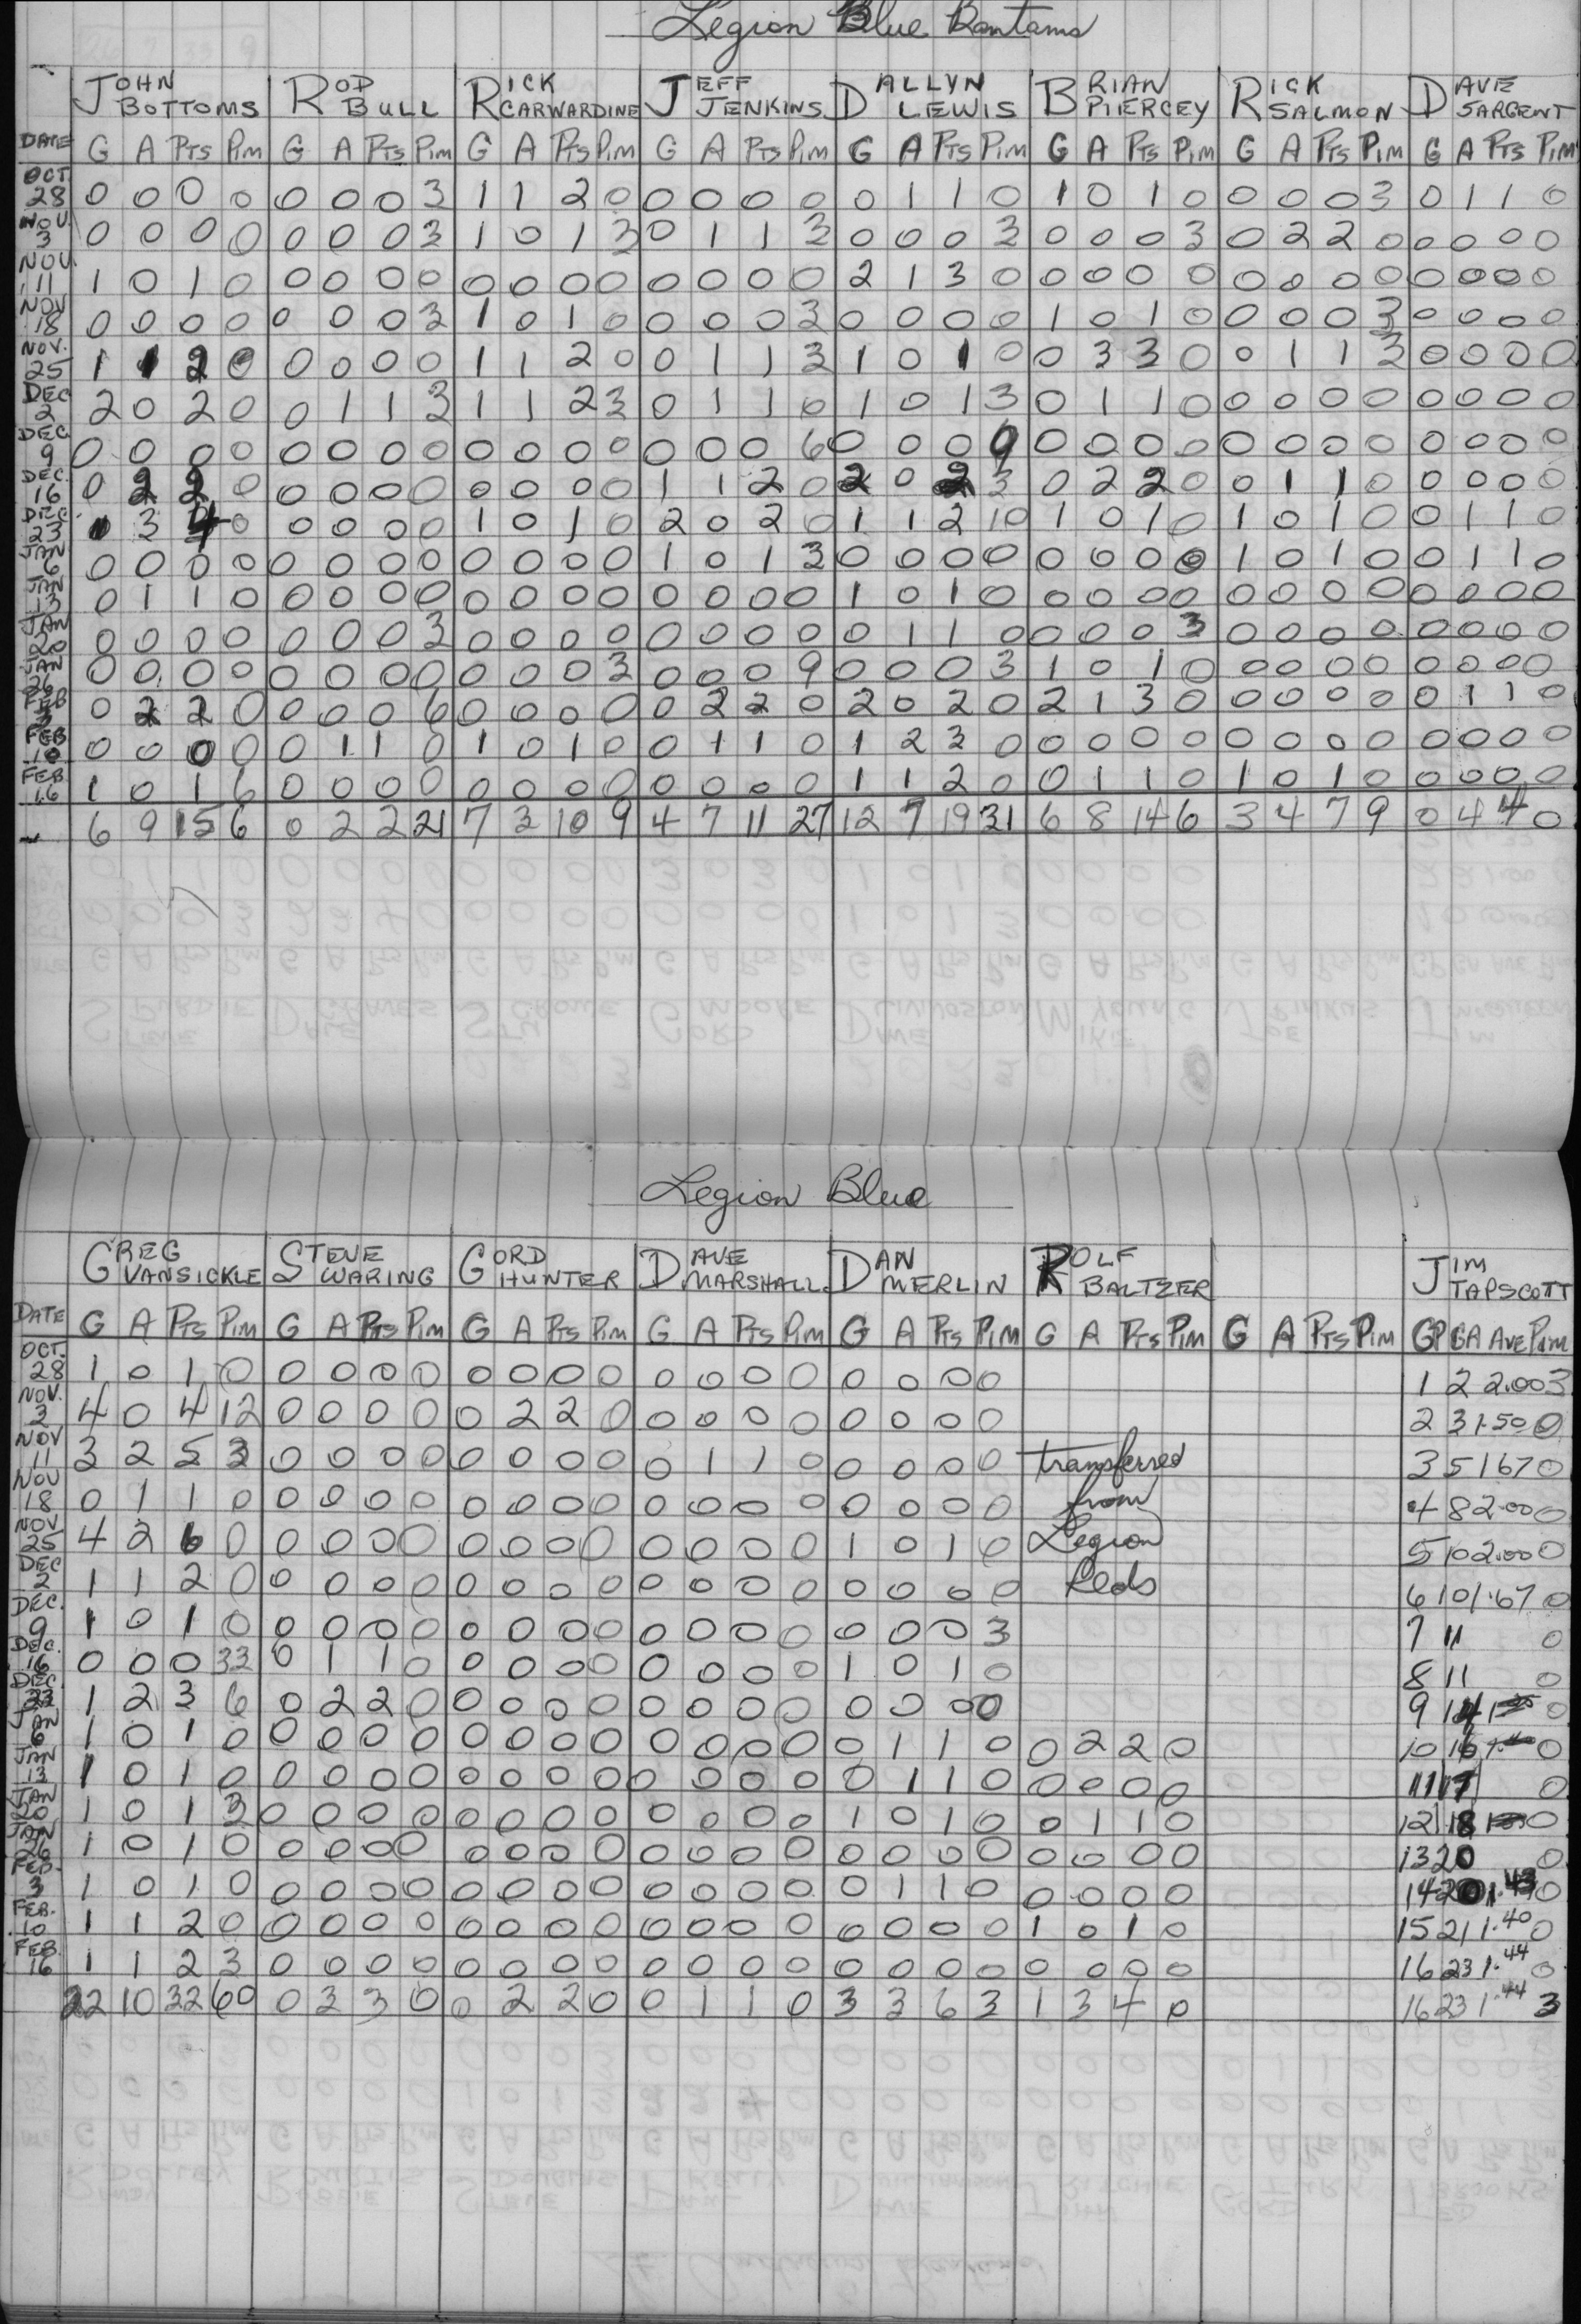 Legion Blue Bantams
JOHN BOTTOMS ROD BULL RICK CARWARDINE JEFF JENKINS DALLYN LEWIS BRIAN PIERCEY RICK SALMON DAVE SARGENT
DATE G A PTS PIM G A PTS PIM G A PTS PIM G A PTS PIM G A PTS PIM G A PTS PIM G A PTS PIM G A PTS PIM
OCT 28 0 0 0 0 0 0 0 3 1 1 2 0 0 0 0 0 0 1 1 0 1 0 1 0 0 0 0 3 0 1 1 0
NOV. 3 0 0 0 0 0 0 0 3 1 0 1 3 0 1 1 3 0 0 0 3 0 0 0 3 0 2 2 0 0 0 0 0
NOV. 11 1 0 1 0 0 0 0 0 0 0 0 0 0 0 0 0 2 1 3 0 0 0 0 0 0 0 0 0 0 0 0 0
NOV 18 0 0 0 0 0 0 0 3 1 0 1 0 0 0 0 3 0 0 0 0 1 0 1 0 0 0 0 3 0 0 0 0
NOV. 25 1 1 2 0 0 0 0 0 1 1 2 0 0 1 1 3 1 0 1 0 0 3 3 0 0 1 1 3 0 0 0 0
DEC 2 2 0 2 0 0 1 1 3 1 1 2 3 0 1 1 0 1 0 1 3 0 1 1 0 0 0 0 0 0 0 0 0
DEC. 9 0 0 0 0 0 0 0 0 0 0 0 0 0 0 0 6 0 0 0 9 0 0 0 0 0 0 0 0 0 0 0 0
DEC. 16 0 2 2 0 0 0 0 0 0 0 0 0 1 1 2 0 2 0 2 3 0 2 2 0 0 1 1 0 0 0 0 0
DEC 23 1 3 4 0 0 0 0 0 1 0 1 0 2 0 2 0 1 1 2 10 1 0 1 0 1 0 1 0 0 1 1 0
JAN 6 0 0 0 0 0 0 0 0 0 0 0 0 1 0 1 3 0 0 0 0 0 0 0 0 1 0 1 0 0 1 1 0
JAN 13 0 1 1 0 0 0 0 0 0 0 0 0 0 0 0 0 1 0 1 0 0 0 0 0 0 0 0 0 0 0 0 0
JAN 20 0 0 0 0 0 0 0 3 0 0 0 0 0 0 0 0 0 1 1 0 0 0 0 3 0 0 0 0 0 0 0 0
JAN 26 0 0 0 0 0 0 0 0 0 0 0 3 0 0 0 9 0 0 0 3 1 0 1 0 0 0 0 0 0 0 0 0
FEB 3 0 2 2 0 0 0 0 6 0 0 0 0 0 2 2 0 2 0 2 0 2 1 3 0 0 0 0 0 0 1 1 0
FEB 10 0 0 0 0 0 1 1 0 1 0 1 0 0 1 1 0 1 2 3 0 0 0 0 0 0 0 0 0 0 0 0 0
FEB. 16 1 0 1 6 0 0 0 0 0 0 0 0 0 0 0 0 1 1 2 0 0 1 1 0 1 0 1 0 0 0 0 0
6 9 15 6 0 2 2 21 7 3 10 9 4 7 11 27 12 7 19 31 6 8 14 6 3 4 7 9 0 4 4 0
Legion Blue
GREG VANSICKLE STEVE WARING GORD HUNTER DAVE MARSHALL DAN MERLIN ROLF BALTZER JIM TAPSCOTT
DATE G A PTS PIM G A PTS PIM G A PTS PIM G A PTS PIM G A PTS PIM G A PTS PIM G A PTS PIM GP GA AVE PIM
OCT. 28 1 0 1 0 0 0 0 0 0 0 0 0 0 0 0 0 0 0 0 0 1 2 2.00 3
NOV. 3 4 0 4 12 0 0 0 0 0 2 2 0 0 0 0 0 0 0 0 0 2 3 1.50 0
NOV 11 3 2 5 3 0 0 0 0 0 0 0 0 0 1 1 0 0 0 0 0 transferred 3 5 1.67 0
NOV 18 0 1 1 0 0 0 0 0 0 0 0 0 0 0 0 0 0 0 0 0 from 4 8 2.00 0
NOV 25 4 2 6 0 0 0 0 0 0 0 0 0 0 0 0 0 1 0 1 0 Legion 5 10 2.00 0
DEC 2 1 1 2 0 0 0 0 0 0 0 0 0 0 0 0 0 0 0 0 0 Reds 6 10 1.67 0
DEC. 9 1 0 1 0 0 0 0 0 0 0 0 0 0 0 0 0 0 0 0 3 7 11 0
DEC. 16 0 0 0 33 0 1 1 0 0 0 0 0 0 0 0 0 1 0 1 0 8 11 0
DEC 23 1 2 3 6 0 2 2 0 0 0 0 0 0 0 0 0 0 0 0 0 9 14 0
JAN 6 1 0 1 0 0 0 0 0 0 0 0 0 0 0 0 0 0 1 1 0 0 2 2 0 10 16 0
JAN 13 1 0 1 0 0 0 0 0 0 0 0 0 0 0 0 0 0 1 1 0 0 0 0 0 11 17 0
JAN 20 1 0 1 3 0 0 0 0 0 0 0 0 0 0 0 0 1 0 1 0 0 1 1 0 12 18 0
JAN 26 1 0 1 0 0 0 0 0 0 0 0 0 0 0 0 0 0 0 0 0 0 0 0 0 13 20 0
FEB. 3 1 0 1 0 0 0 0 0 0 0 0 0 0 0 0 0 0 1 1 0 0 0 0 0 14 20 1.43 0
FEB. 10 1 1 2 0 0 0 0 0 0 0 0 0 0 0 0 0 0 0 0 0 1 0 1 0 15 21 1.40 0
FEB. 16 1 1 2 3 0 0 0 0 0 0 0 0 0 0 0 0 0 0 0 0 0 0 0 0 16 23 1.44 0
22 10 32 60 0 3 3 0 0 2 2 0 0 1 1 0 3 3 6 3 1 3 4 0 16 23 1.44 3